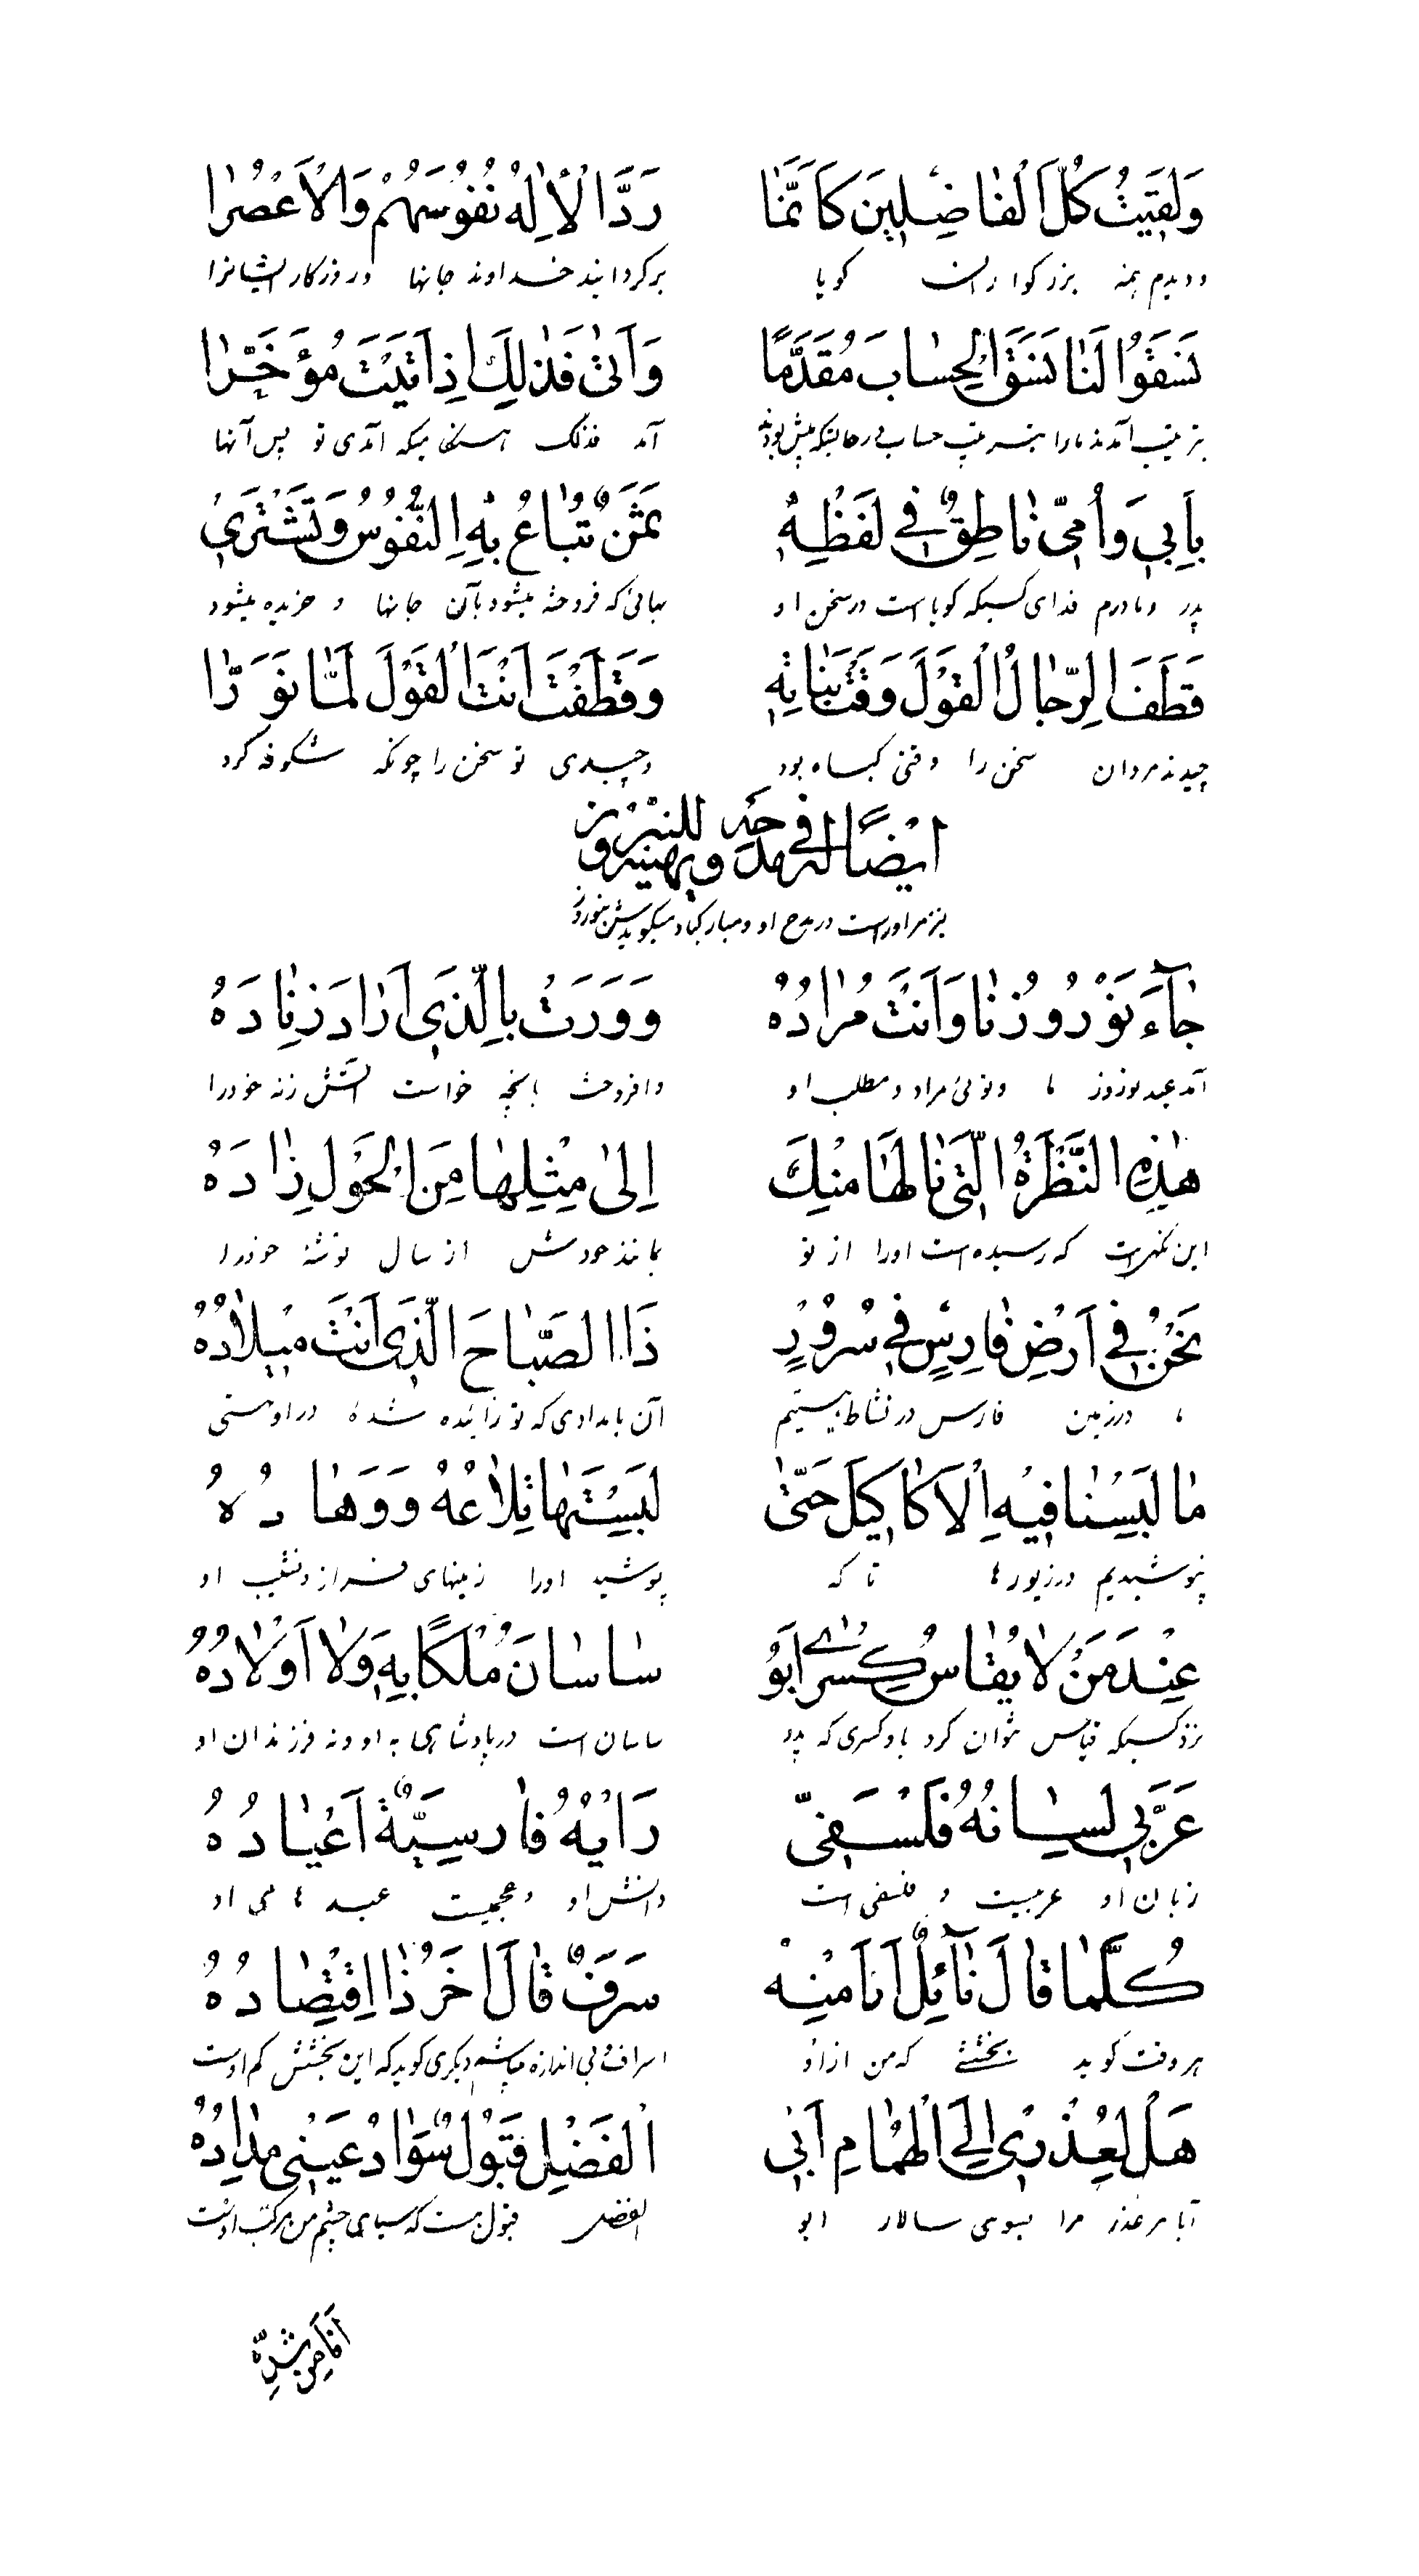 وَلَقِيتُ كُلَّ الْفاضِلينَ كَاَنَّمٰا رَدَّ الْاِلٰهُ نُفُوسَهُمْ وَالْاَعْصُرٰا
وديدم همه بزركوارانرا كويا بركردانيد خداوند جانها و روزكار ايشانرا
نَسَقُوا لَنٰا نَسَقَ الْحِسٰابَ مُقَدَّمًا وَاَتىٰ فَذٰلِكَ اِذْ اَتَيْتَ مُؤَخَّرٰا
آمد فذلك هنكاميكه آمدى تو پس آنها
بِاَبي وَاُمّي نٰاطِقٌ في لَفْظِهِ ثَمَنٌ تُبٰاعُ بِهِ النُّفُوسُ وَتُشْتَرىٰ
پدر و مادرم فداى كسيكه كويا است در سخن او بهائى كه فروخته ميشود بآن جانها و خريده ميشود
قَطَفَ الرِّجٰالُ الْقَوْلَ وَقْتَ نَبٰاتِهِ وَقَطَفْتَ اَنْتَ الْقَوْلَ لَمّٰا نَوَّرٰا
چيدند مردان سخن را وقتى كياه بود وچيدى تو سخن را چونكه شكوفه كرد
ايضًا له في مدحه ويهنيه للنيروز
نيز مر اوراست در مدح او و مباركباد ميكويدش بنوروز
جٰآءَ نَوْرُوزُنٰا وَاَنْتَ مُرٰادُهُ وَوَرَتْ بِالَّذي اَرٰادَ زِنٰادَهُ
آمد عيد نوروز ما و توئى مراد و مطلب او وافروخت بانچه خواست آتش زنه خودرا
هٰذِهِ النَّظْرَةُ الَّتي نٰالَهٰا مِنْكَ اِلىٰ مِثْلِهٰا مِنَ الْحَوْلِ زٰادَهُ
اين نكهى است كه رسيده است اورا از تو بمانند خودش از سال توشه خودرا
نَحْنُ في اَرْضِ فٰارِسٍ في سُرُورٍ ذَا الصَّبٰاحَ الَّذي اَنْتَ ميلاٰدُهُ
ما در زمين فارس در نشاط هستيم آن بامدادى كه تو زائيده شدۀ در او هستى
مٰا لَبِسْنٰا فيهِ الْاَكٰاليلَ حَتّىٰ لَبِسَتْهٰا تِلاٰعُهُ وَوَهٰادُهُ
نپوشيديم در زيورها تا كه پوشيد اورا زمينهاى فراز ونشيب او
عِنْدَ مَنْ لاٰ يُقٰاسُ كِسْرىٰ اَبُو سٰاسٰانَ مُلْكًا بِهِ وَلاٰ اَوْلاٰدُهُ
نزد كسيكه قياس نتوان كرد باو كسرى كه پدر ساسان است در پادشاهى به او و نه فرزندان او
عَرَبِيٌّ لِسٰانُهُ فَلْسَفِيٌّ رَاْيُهُ فٰارِسِيَّةٌ اَعْيٰادُهُ
زبان او عربيت و فلسفى است دانش او وعجميت عيدهاى او
كُلَّمٰا قٰالَ نٰآئِلٌ اَنَا مِنْهُ سَرَفٌ قٰالَ اٰخَرُ ذَا اقْتِصٰادُهُ
هر وقت كويد بخششى كه من از او اسراف بى اندازه ميباشم ديكرى كويد كه اين بخشش كم اوست
هَلْ لِعُذْري اِلَى الْهُمٰامِ اَبي الْفَضْلِ قَبُولٌ سَوٰادُ عَيْني مِدٰادُهُ
آيا مر عذر مرا بسوى سالار ابو الفضل قبول هست كه سياهى چشم من مركب اوست
اَنَا مِنْ شِدَّةِ